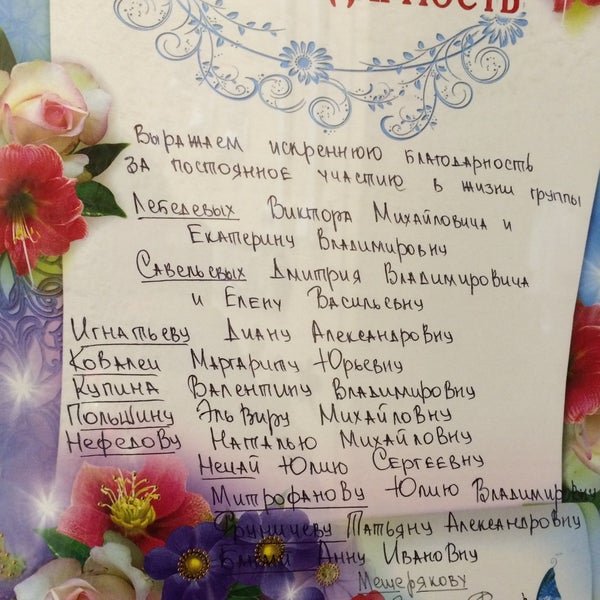 Выражаем искреннюю благодарность
за постоянное участию в жизни группы
Лебедевых Виктора Михайловича и
Екатерину Владимировну
Савельевых Дмитрия Владимировича
и Елену Васильевну
Игнатьеву Диану Александровну
Ковалец Маргариту Юрьевну
Купина Валентину Владимировну
Польшину Эльвиру Михайловну
Нефедову Наталью Михайловну
Нецай Юлию Сергеевну
Митрофанову Юлию Владимировну
Татьяну Александровну
Анну Ивановну
Мещерякову